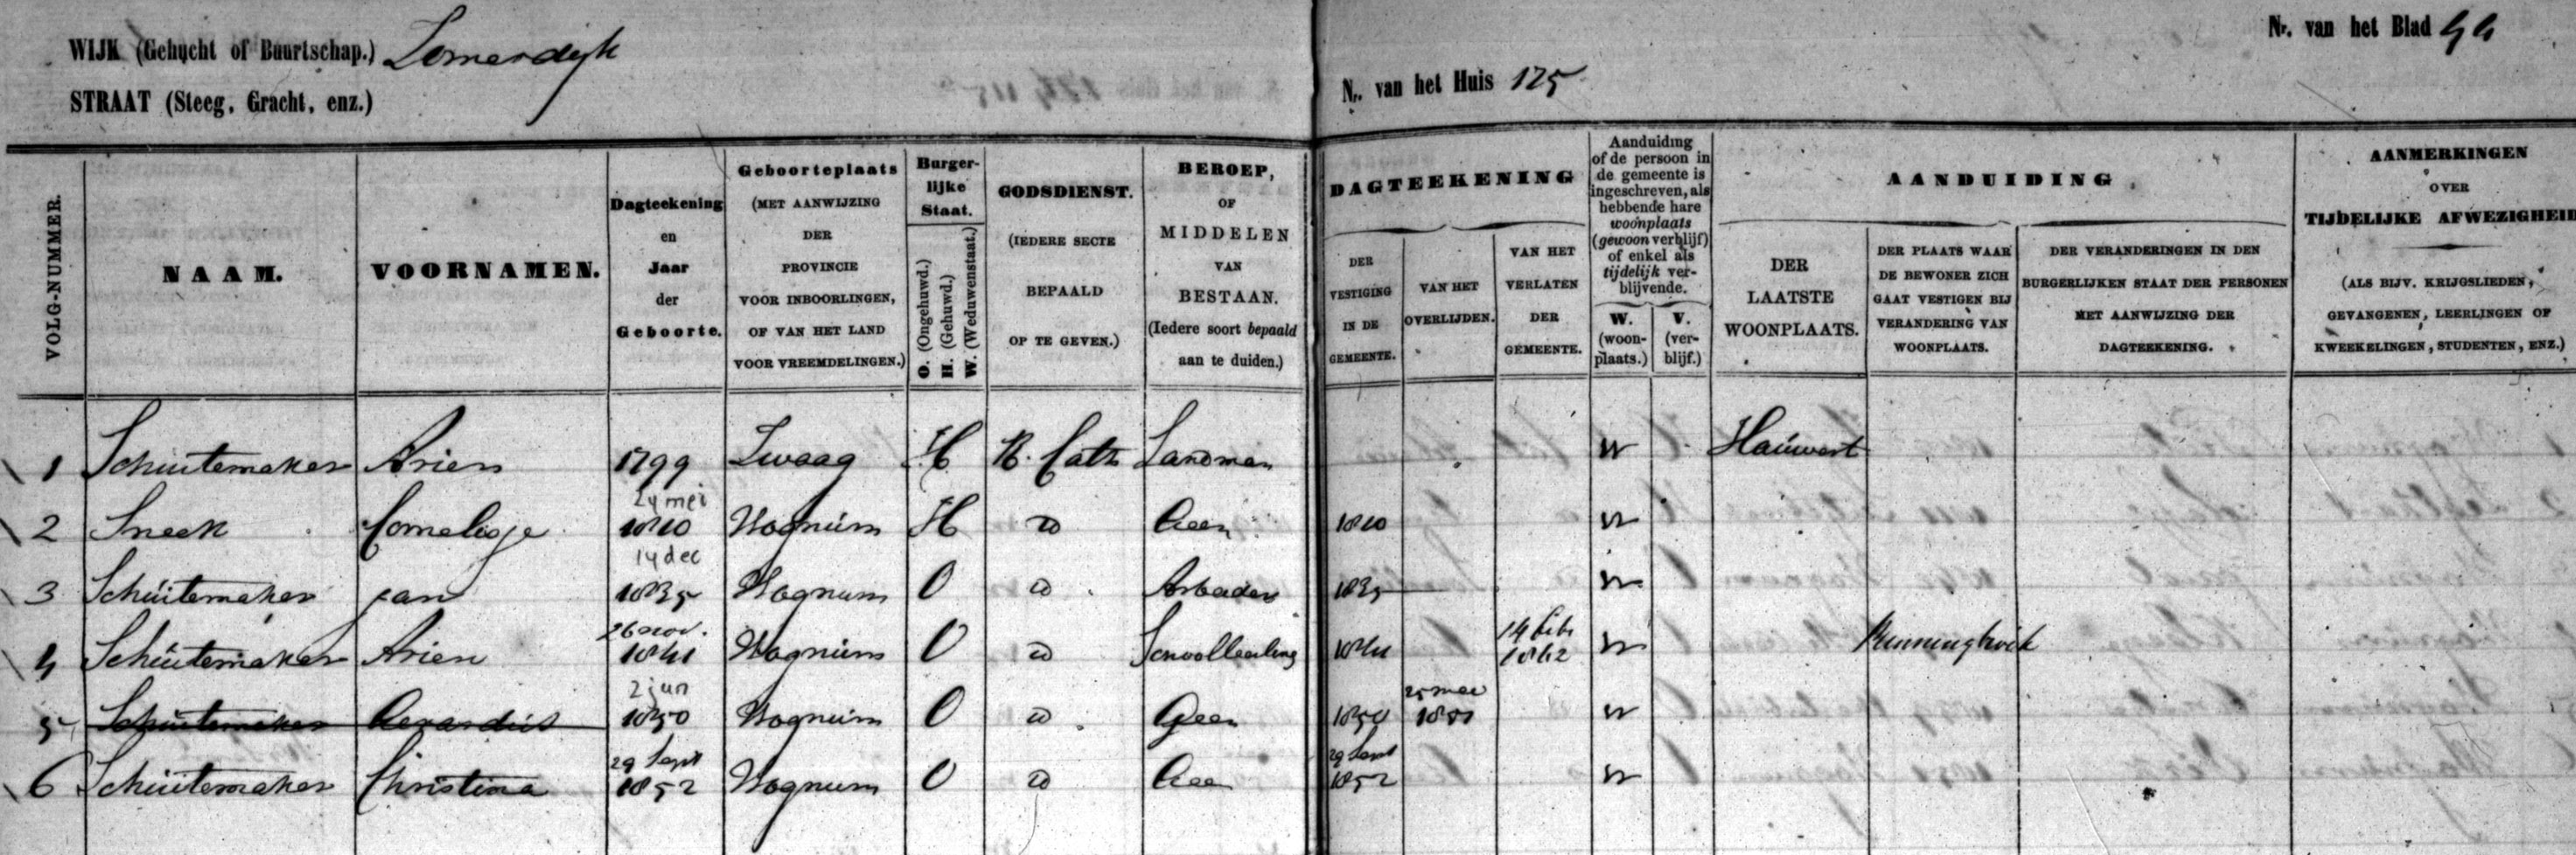 WIJK (Gehucht of Buurtschap.) Lomerdijk
STRAAT (Steeg, Gracht, enz.)
Nr. van het Huis 125
Nr. van het Blad 44
VOLG-NUMMER.
NAAM.
VOORNAMEN.
Dagteekening
en
Jaar
der
Geboorte.
Geboorteplaats
(MET AANWIJZING
DER
PROVINCIE
VOOR INBOORLINGEN,
OF VAN HET LAND
VOOR VREEMDELINGEN.)
Burger-
lijke
Staat.
O. (Ongehuwd.)
H. (Gehuwd.)
W. (Weduwenstaat.)
GODSDIENST.
(IEDERE SECTE
BEPAALD
OP TE GEVEN.)
BEROEP,
OF
MIDDELEN
VAN
BESTAAN.
(Iedere soort bepaald
aan te duiden.)
DAGTEEKENING
DER
VESTIGING
IN DE
GEMEENTE.
VAN HET
OVERLIJDEN.
VAN HET
VERLATEN
DER
GEMEENTE.
Aanduiding
of de persoon in
de gemeente is
ingeschreven, als
hebbende hare
woonplaats
(gewoon verblijf)
of enkel als
tijdelijk ver-
blijvende.
W.
(woon-
plaats.)
V.
(ver-
blijf.)
AANDUIDING
DER
LAATSTE
WOONPLAATS.
DER PLAATS WAAR
DE BEWONER ZICH
GAAT VESTIGEN BIJ
VERANDERING VAN
WOONPLAATS.
DER VERANDERINGEN IN DEN
BURGERLIJKEN STAAT DER PERSONEN
MET AANWIJZING DER
DAGTEEKENING.
AANMERKINGEN
OVER
TIJDELIJKE AFWEZIGHEID
(ALS BIJV. KRIJGSLIEDEN,
GEVANGENEN, LEERLINGEN OF
KWEEKELINGEN, STUDENTEN, ENZ.)
1 Schuitemaker Arien 1799 Zwaag H R. Cath Landman W Hauwert
24 mei
2 Sneek Cornelisje 1810 Wognum H id Geen 1810 W
14 dec
3 Schuitemaker Jan 1835 Wognum O id Arbeider 1835 W
26 nov. 14 feb
4 Schuitemaker Arien 1841 Wognum O id Schoolleerling 1841 1862 W
2 jun 25 mei
5 Schuitemaker Gerardus 1850 Wognum O id Geen 1850 W
29 Sept 29 Sept
6 Schuitemaker Christina 1852 Wognum O id Geen 1852 W